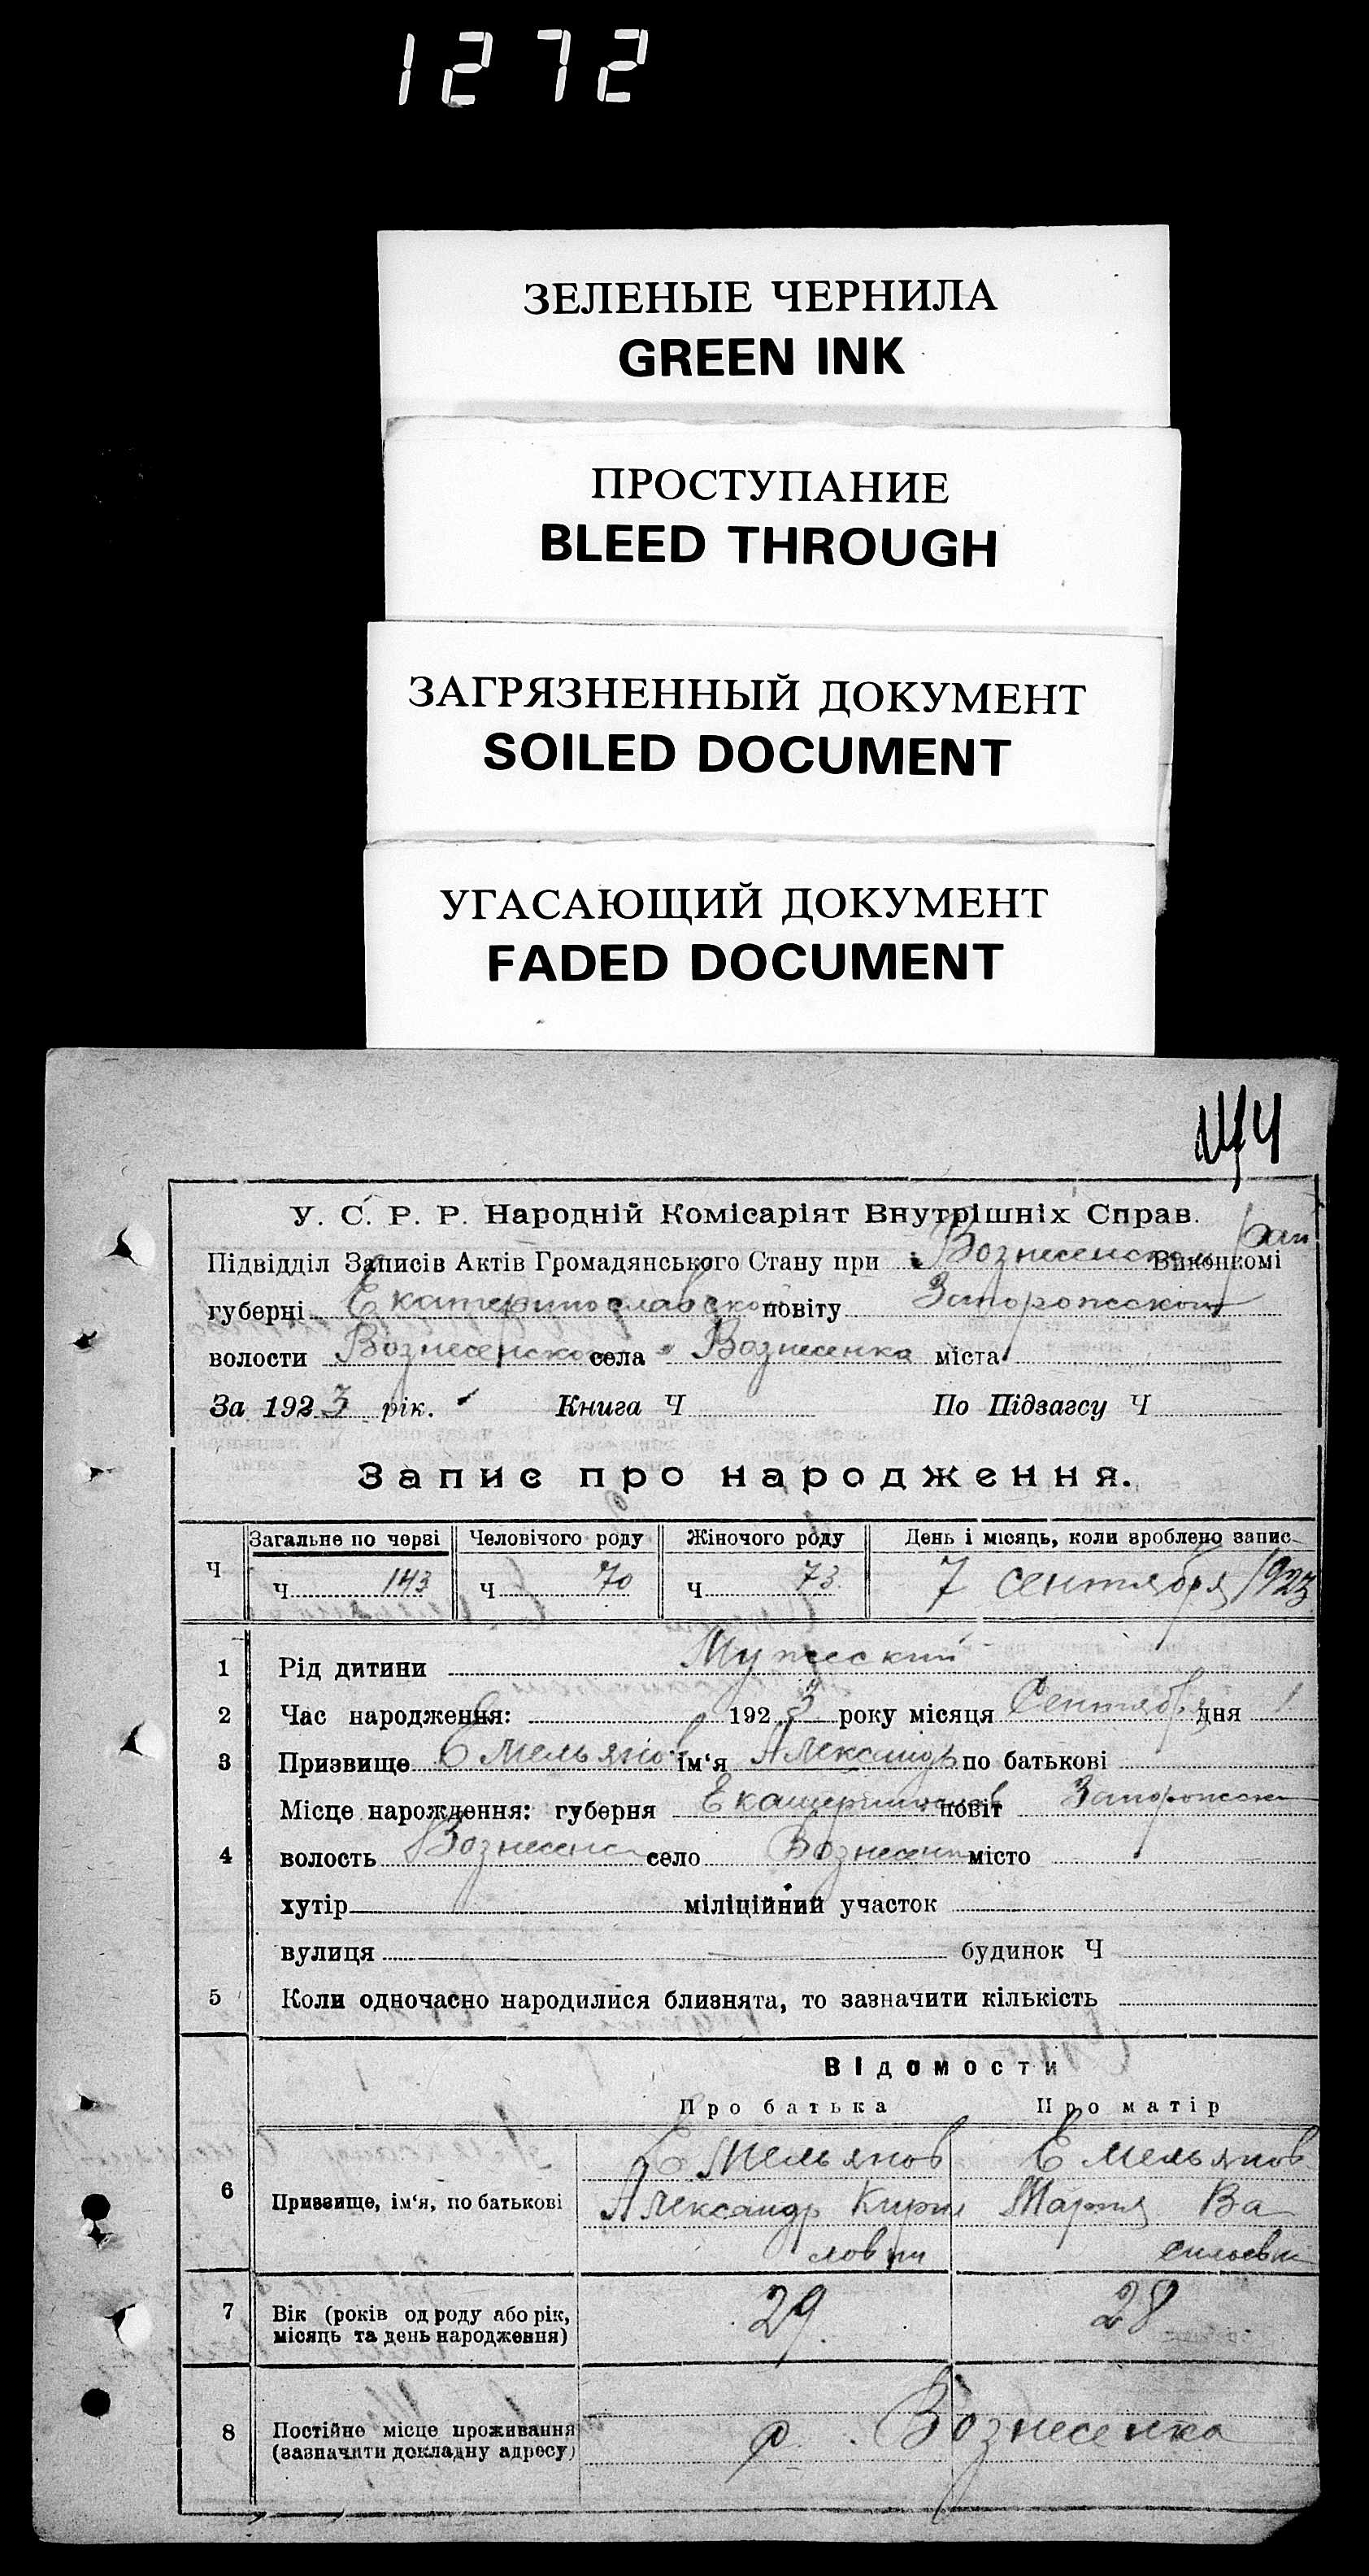 1272
ЗЕЛЕНЫЕ ЧЕРНИЛА
GREEN INK
ПРОСТУПАНИЕ
BLEED THROUGH
ЗАГРЯЗНЕННЫЙ ДОКУМЕНТ
SOILED DOCUMENT
УГАСАЮЩИЙ ДОКУМЕНТ
FADED DOCUMENT
У. С. Р. Р. Народній Комісаріят Внутрішніх Справ.
Підвідділ Записів Актів Громадянського Стану при Вознесенском Виконкомі
губерні Екатеринославской повіту Запорожского
волости Вознесенской села Вознесенка міста
За 1923 рік. Книга Ч По Підзагсу Ч
Запис про народження.
Ч Загальне по черзі Человічого роду Жіночого роду День і місяць, коли зроблено запис
Ч 143 Ч 70 Ч 73 7 сентября 1923
1 Рід дитини Мужеский
2 Час народження: 1923 року місяця Сентябр дня 1
3 Призвище Емельянов Ім‘я Александр по батькові
Місце нарождення: губерня Екатеринослав повіт Запорожск
4 волость Вознесенс село Вознесен місто
хутір міліційний участок
вулиця будинок Ч
5 Коли одночасно народилися близнята, то зазначити кількість
Відомости
Про батька Про матір
6 Призвище, ім‘я, по батькові Емельянов Емельянов
Александр Кирил Мария Ва
лович сильевн
7 Вік (років од роду або рік, місяць та день народження) 29 28
8 Постійне місце проживання (зазначити докладну адресу) Вознесенка